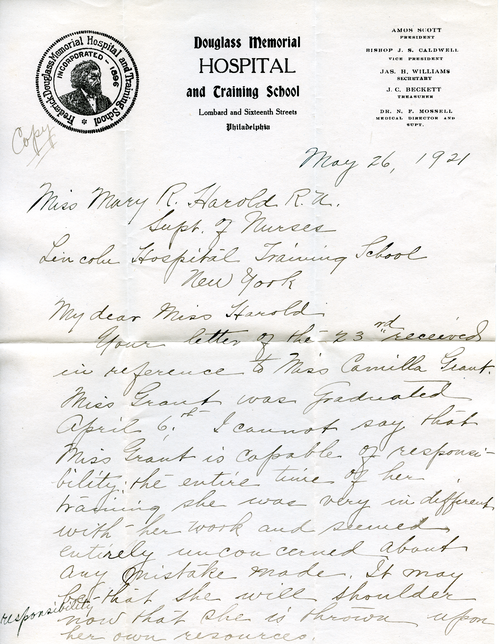 Frederick Douglass Memorial Hospital and Training School
INCORPORATED - 1896
Douglass Memorial
HOSPITAL
and Training School
Lombard and Sixteenth Streets
Philadelphia
AMOS SCOTT
PRESIDENT
BISHOP J. S. CALDWELL
VICE PRESIDENT
JAS. H. WILLIAMS
SECRETARY
J. C. BECKETT
TREASURER
DR. N. F. MOSSELL
MEDICAL DIRECTOR AND
SUPT.
Copy
May 26, 1921
Miss Mary R. Harold R.N.
Supt. of Nurses
Lincoln Hospital Training School
New York
My dear Miss Harold
Your letter of the 23rd received
in reference to Miss Camilla Grant.
Miss Grant was graduated
April 6.th I cannot say that
Miss Grant is capable of responsi-
bility; the entire time of her
training she was very indifferent
with her work and seemed
entirely unconcerned about
any mistake made. It may
be that she will shoulder
responsibility
now that she is thrown upon
her own resources.